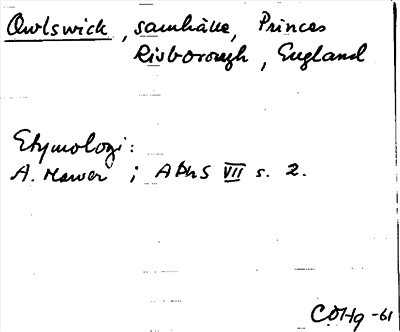 Owlswick, samhälle, Princes
Risborough, England
Etymologi:
A. Mawer; APhS VII s. 2.
COHg -61